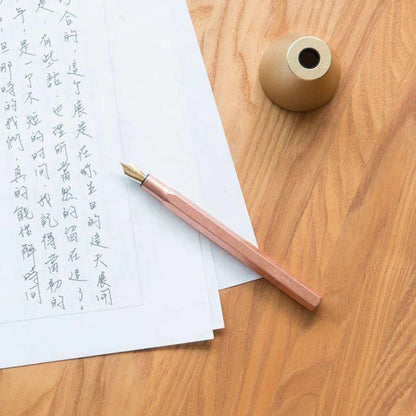 合的，這个展是在你生日的這天展開
是，有些話也理所當然的留在這了。
年，是一个不短的時間，我記得當初的
但那時的我們，真的能解時間